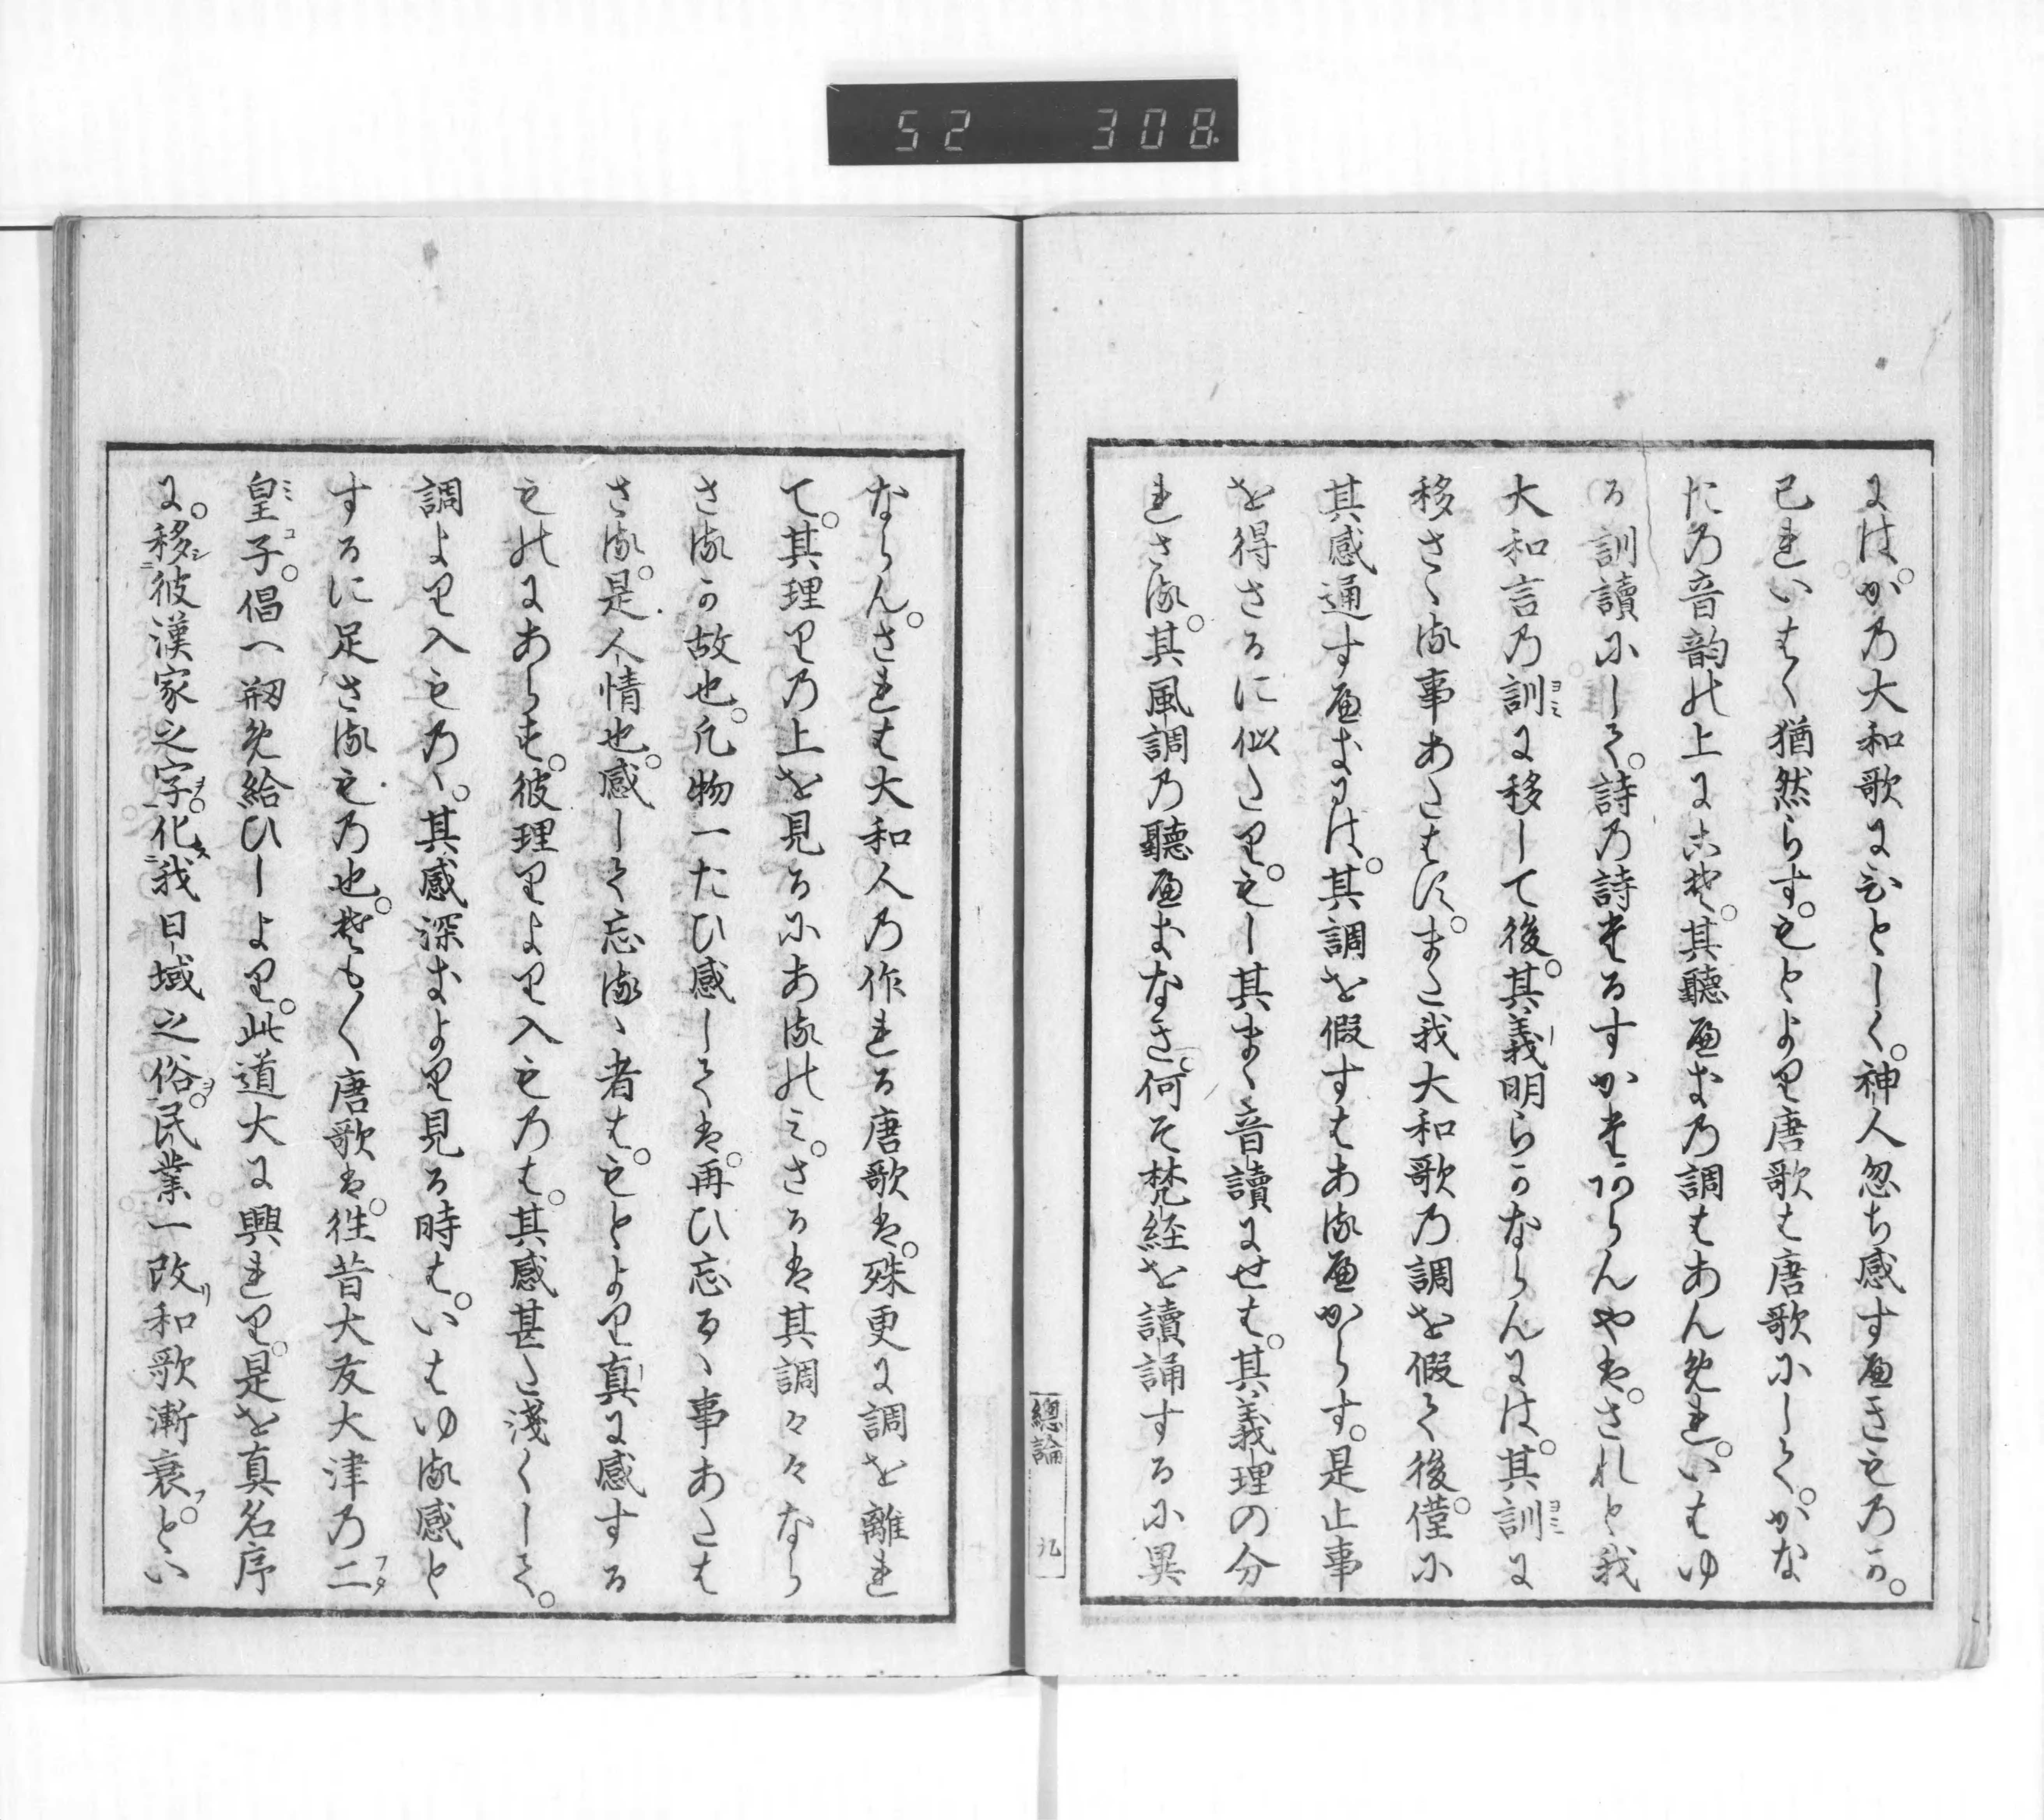 52 308
にはか乃大和歌にひとしく神人忽ち感す應きもの可
已れいはく猶然らすもとより唐歌は唐歌にしてかな
た乃音韵の上にこそ其聽應ま乃調はあんめれいはゆ
る訓讀にして詩乃詩たるすかたあらんやはされと我
大和言乃訓に移して後其義明らかならんには其訓に
移さゝる事あたはすまた我大和歌乃調を假て後僅に
其感通す應まには其調を假すはある應からす是止事
を得さるに似たりもし其まゝ音讀にせは其義理の分
れさる其風調乃聽應まなき何そ梵経を讀誦するに異
總論 九
ならんされは大和人乃作れる唐歌は殊更に調を離れ
て其理り乃上を見るにあるのみさるは其調々々なら
さる可故也凡物一たひ感しては再ひ忘るゝ事あたは
さる是人情也感して忘るゝ者はもとより真に感する
ものにあらす彼理りより入もの は其感甚た淺くして
調より入もの ゝ其感深まより見る時はいはゆる感と
するに足さるもの也そもそも唐歌は徃昔大友大津乃二
皇子倡へ剏め給ひしより此道大に興れり是を真名序
に移彼漢家之字化我日域之俗民業一改和歌漸衰とい